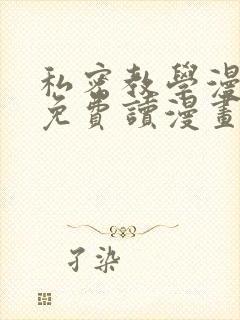 私密教學漫
免費讀漫畫
孑染